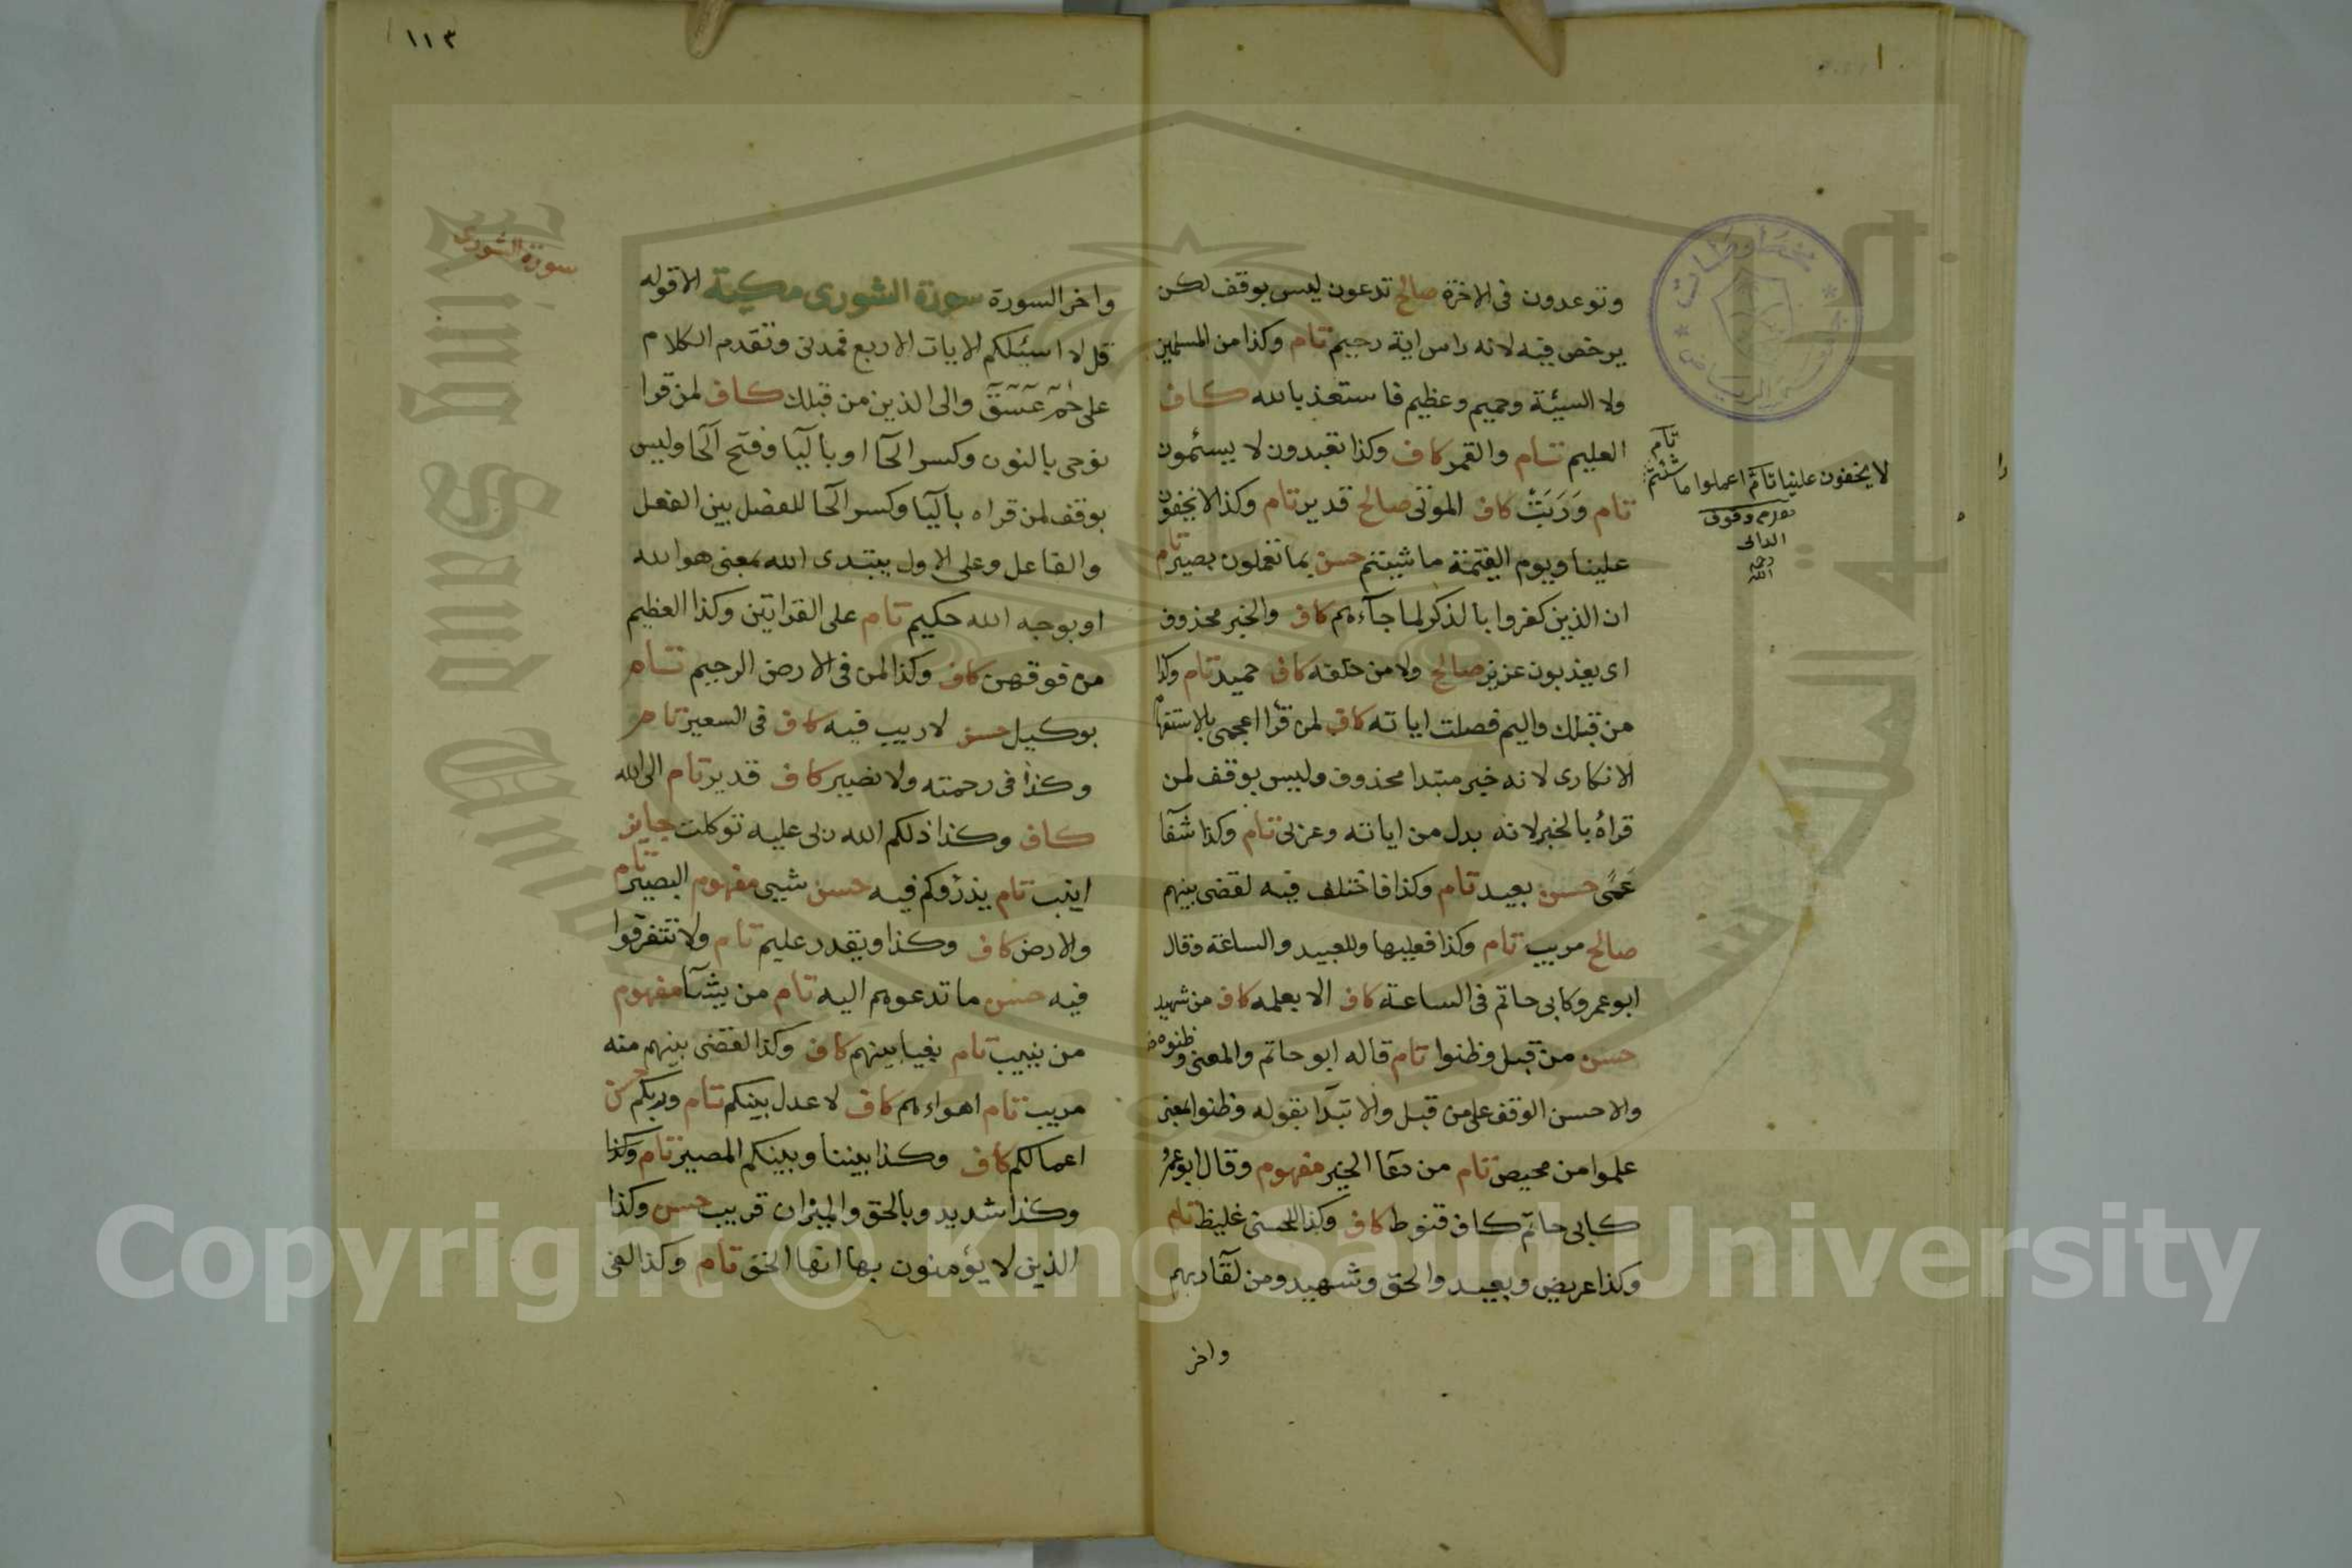 وتوعدون فى الاخرة صالح تدعون ليس بوقف لكن
يرخص فيه لانه راس اية رحيم تام وكذا من المسلمين
ولا السيئة وحميم وعظيم فاستعذ بالله كاف
العليم تام والقمر كاف وكذا تعبدون لا يسئمون
تام وَرَبَتْ كاف الموتى صالح قدير تام وكذا لا يخفون
علينا ويوم القيمة ما شيتم حسن بما تعملون بصير تام
ان الذين كفروا بالذكر لما جآءهم كاف والخبر محذوف
اى يعذبون عزيز صالح ولا من خلفه كاف حميد تام وكذا
من قبلك واليم فصلت اياته كاف لمن قرا اعجمى بالاستفهام
الانكارى لانه خبر مبتدا محذوف وليس بوقف لمن
قراه بالخبر لانه بدل من اياته وعربى تام وكذا شفآ
عَمًى حسن بعيد تام وكذا فاختلف فيه لقضى بينهم
صالح مريب تام وكذا فعليها وللعبيد والساعة وقال
ابو عمرو كابى حاتم فى الساعة كاف الا بعلمه كاف من شهيد
حسن من قبل وظنوا تام قاله ابو حاتم والمعنى وظنوه
والاحسن الوقف على من قبل والابتدآ بقوله وظنوا بمعنى
علموا من محيص تام من دعآ الخير مفهوم وقال ابو عمرو
كابى حاتم كاف قنوط كاف وكذا للحسنى غليظ تام
وكذا عريض وبعيد والحق وشهيد ومن لقآ ربهم
واخر
تام
لا يخفون علينا تام اعملوا ما شئتم
وقوف
الدانى
رحمه
الله
مخطوطات
الرياض
١١٣
سورة الشورى
واخر السورة سورة الشورى مكية الا قوله
قل لا اسئلكم الايات الاربع فمدنى وتقدم الكلام
على حٰمٓ عٓسٓقٓ والى الذين من قبلك كاف لمن قرا
نوحى بالنون وكسر الحآ او باليآ وفتح الحآ وليس
بوقف لمن قراه باليآ وكسر الحآ للفصل بين الفعل
والفاعل وعلى الاول يبتدى الله بمعنى هو الله
او يوحيه الله حكيم تام على القراتين وكذا العظيم
من فوقهن كاف وكذا لمن فى الارض الرحيم تام
بوكيل حسن لا ريب فيه كاف فى السعير تام
وكذا فى رحمته ولا نصير كاف قدير تام الى الله
كاف وكذا ذلكم الله ربى عليه توكلت جايز
انيب تام يذرؤكم فيه حسن شيى مفهوم البصير تام
والارض كاف وكذا ويقدر عليم تام ولا تتفرقوا
فيه حسن ما تدعوهم اليه تام من يشآ مفهوم
من ينيب تام بغيا بينهم كاف وكذا لقضى بينهم منه
مريب تام اهواءهم كاف لا عدل بينكم تام وربكم حسن
اعمالكم كاف وكذا بيننا وبينكم المصير تام وكذا
وكذا شديد وبالحق والميزان قريب حسن وكذا
الذين لا يؤمنون بها انها الحق تام وكذا لفى
Copyright © King Saud University